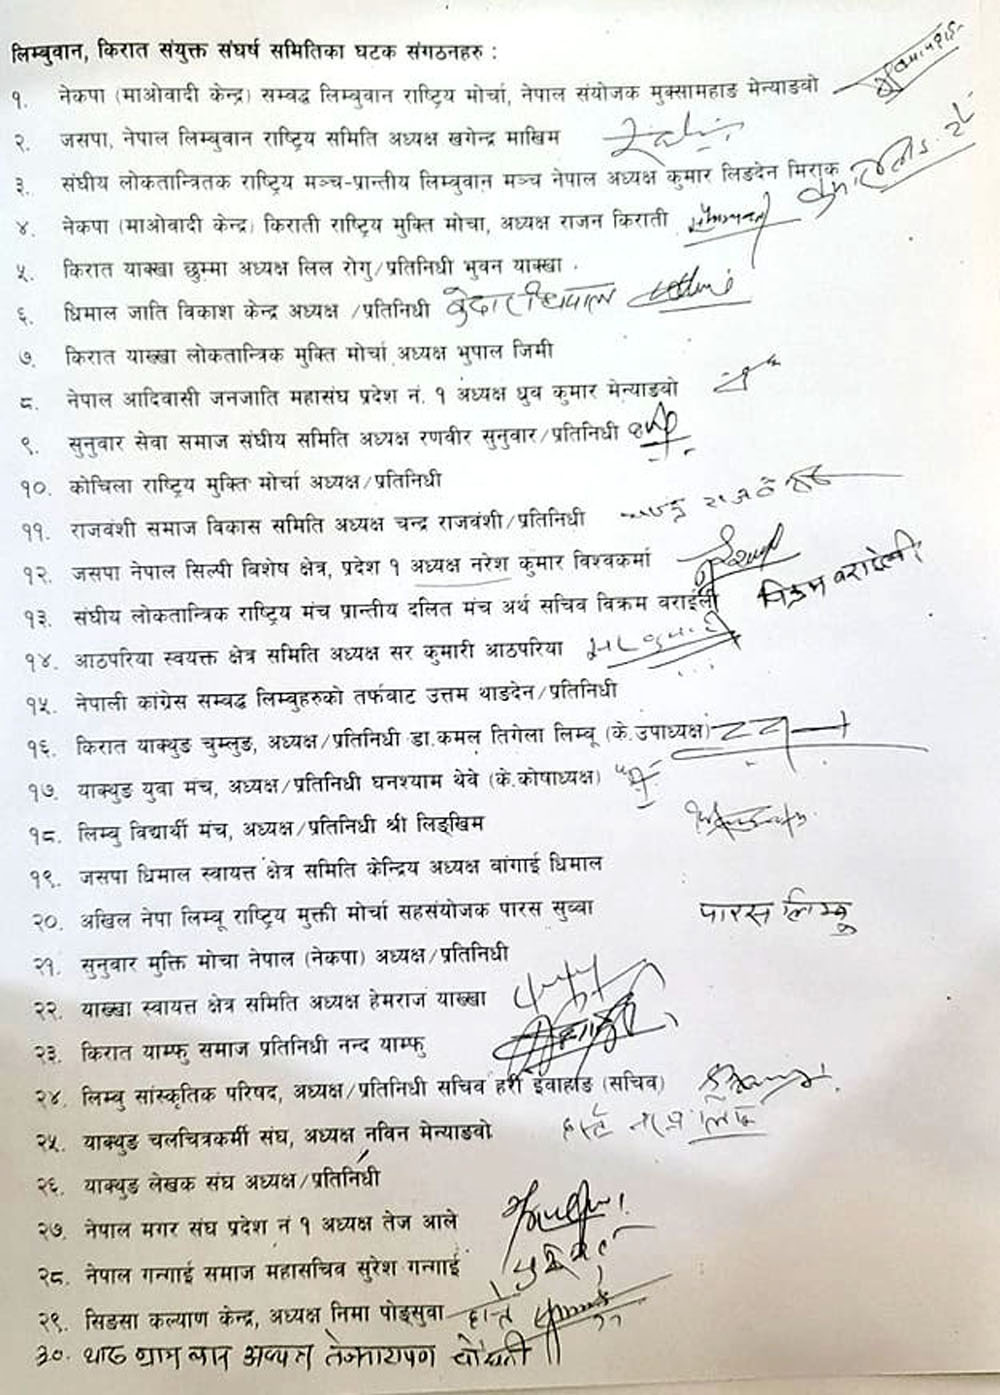 लिम्बुवान, किरात संयुक्त संघर्ष समितिका घटक संगठनहरु :
१. नेकपा (माओवादी केन्द्र) सम्वद्ध लिम्बुवान राष्ट्रिय मोर्चा, नेपाल संयोजक मुक्सामहाङ मेन्याङवो
२. जसपा, नेपाल लिम्बुवान राष्ट्रिय समिति अध्यक्ष खगेन्द्र माखिम
३. संघीय लोकतान्त्रितक राष्ट्रिय मञ्च-प्रान्तीय लिम्बुवान मञ्च नेपाल अध्यक्ष कुमार लिङदेन मिराक
४. नेकपा (माओवादी केन्द्र) किराती राष्ट्रिय मुक्ति मोचा, अध्यक्ष राजन किराती
५. किरात याक्खा छुम्मा अध्यक्ष लिल रोगु/प्रतिनिधी भुवन याक्खा
६. धिमाल जाति विकाश केन्द्र अध्यक्ष /प्रतिनिधी
७. किरात याख्खा लोकतान्त्रिक मुक्ति मोर्चा अध्यक्ष भुपाल जिमी
८. नेपाल आदिवासी जनजाति महासंघ प्रदेश नं. १ अध्यक्ष ध्रुव कुमार मेन्याङवो
९. सुनुवार सेवा समाज संघीय समिति अध्यक्ष रणवीर सुनुवार/प्रतिनिधी
१०. कोचिला राष्ट्रिय मुक्ति मोर्चा अध्यक्ष/प्रतिनिधी
११. राजवंशी समाज विकास समिति अध्यक्ष चन्द्र राजवंशी/प्रतिनिधी
१२. जसपा नेपाल सिल्पी विशेष क्षेत्र, प्रदेश १ अध्यक्ष नरेश कुमार विश्वकर्मा
१३. संघीय लोकतान्त्रिक राष्ट्रिय मंच प्रान्तीय दलित मंच अर्थ सचिव विक्रम वराईली विक्रम वराईली
१४. आठपरिया स्वयक्त क्षेत्र समिति अध्यक्ष सर कुमारी आठपरिया
१५. नेपाली कांग्रेस सम्वद्ध लिम्बुहरुको तर्फवाट उत्तम थाङदेन/प्रतिनिधी
१६. किरात याक्थुङ चुम्लुङ, अध्यक्ष/प्रतिनिधी डा.कमल तिगेला लिम्बू (के.उपाध्यक्ष)
१७. याक्थुङ युवा मंच, अध्यक्ष/प्रतिनिधी घनश्याम थेवे (के.कोषाध्यक्ष)
१८. लिम्बु विद्यार्थी मंच, अध्यक्ष/प्रतिनिधी श्री लिङ्खिम
१९. जसपा धिमाल स्वायत्त क्षेत्र समिति केन्द्रिय अध्यक्ष वांगाई धिमाल
२०. अखिल नेपा लिम्बू राष्ट्रिय मुक्ती मोर्चा सहसंयोजक पारस सुव्वा पारस लिम्बु
२१. सुनुवार मुक्ति मोचा नेपाल (नेकपा) अध्यक्ष/प्रतिनिधी
२२. याख्खा स्वायत्त क्षेत्र समिति अध्यक्ष हेमराज याख्खा
२३. किरात याम्फु समाज प्रतिनिधी नन्द याम्फु
२४. लिम्बु सांस्कृतिक परिषद, अध्यक्ष/प्रतिनिधी सचिव हरी इवाहाङ (सचिव)
२५. याक्थुङ चलचित्रकर्मी संघ, अध्यक्ष नविन मेन्याङवो
२६. याक्थुङ लेखक संघ अध्यक्ष/प्रतिनिधी
२७. नेपाल मगर संघ प्रदेश नं १ अध्यक्ष तेज आले
२८. नेपाल गन्गाई समाज महासचिव सुरेश गन्गाई
२९. सिङसा कल्याण केन्द्र, अध्यक्ष निमा पोङ्सुवा
३०. तेजनारायण चौधरी